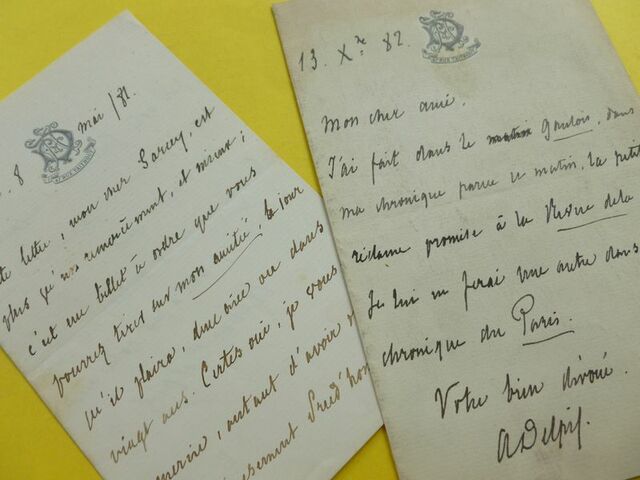 8 mai /81.
lettre, mon cher Sarcey, est
plus qu'un remerciement, et mieux ;
c'est un billet à ordre que vous
pourrez tirer sur mon amitié, le jour
qu'il plaira, dans
vingt ans. Certes oui, je vous
autant d'avoir
13. Xre 82.
Mon cher ami.
J'ai fait dans le matin Gaulois, dans
ma chronique parue ce matin, la petite
réclame promise à la Revue de la
Je lui en ferai une autre dans
chronique du Paris.
Votre bien dévoué.
ADelpit.